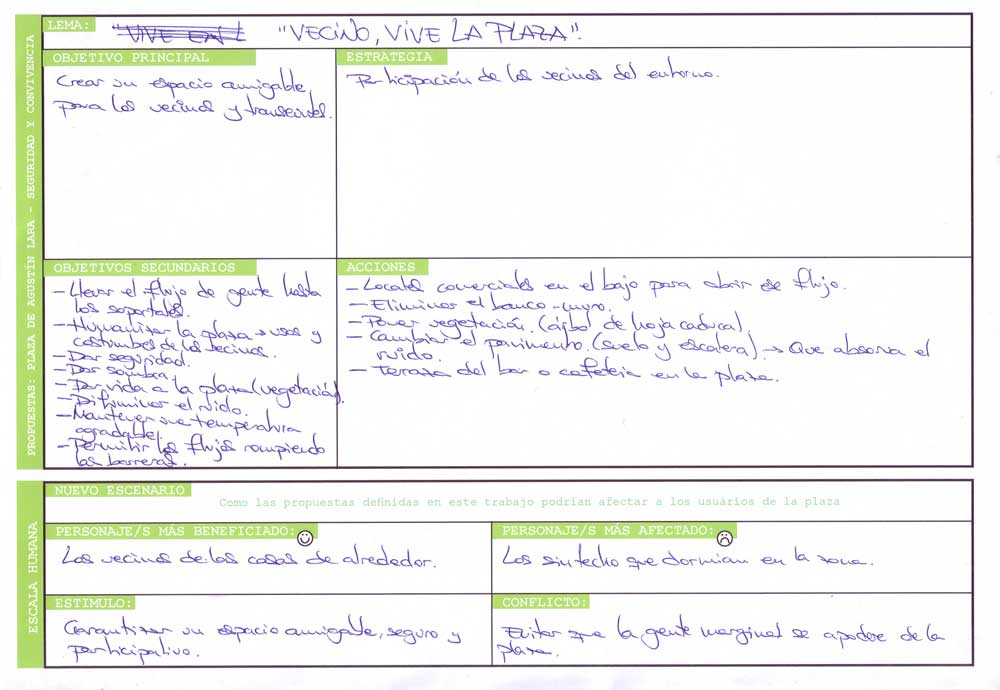 PROPUESTAS: PLAZA DE AGUSTÍN LARA - SEGURIDAD Y CONVIVENCIA
LEMA: "VIVE EN L "VECINO, VIVE LA PLAZA".
OBJETIVO PRINCIPAL
Crear un espacio amigable,
para los vecinos y transeúntes.
ESTRATEGIA
Participación de los vecinos del entorno.
OBJETIVOS SECUNDARIOS
- Llevar el flujo de gente hasta
los soportales.
- Humanizar la plaza → usos y
costumbres de los vecinos.
- Dar seguridad.
- Dar sombra.
- Dar vida a la plaza (vegetación).
- Disminuir el ruido.
- Mantener una temperatura
agradable.
- Permitir los flujos rompiendo
las barreras.
ACCIONES
- Locales comerciales en el bajo para abrir ese flujo.
- Eliminar el banco-muro.
- Poner vegetación. (árbol de hoja caduca)
- Cambiar el pavimento. (suelo y escalera) → Que absorva el
ruido.
- Terraza del bar o cafetería en la plaza.
ESCALA HUMANA
NUEVO ESCENARIO
Como las propuestas definidas en este trabajo podrían afectar a los usuários de la plaza
PERSONAJE/S MÁS BENEFICIADO:
Los vecinos de las casas de alrededor.
PERSONAJE/S MÁS AFECTADO:
Los sintecho que dormían en la zona.
ESTIMULO:
Garantizar un espacio amigable, seguro y
participativo.
CONFLICTO:
Evitar que la gente marginal se apodere de la
plaza.